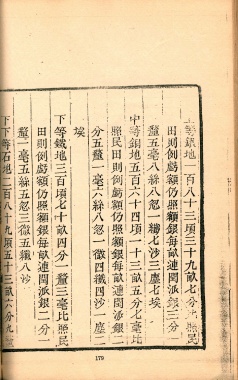 上等銀地一百八十三頃三十九畝七分比照民
田則例虧額仍照額銀每畝連閏派銀三分一
釐五毫八絲八忽一纖七沙三塵七埃
中等銅地五百六十四頃一十三畝五分七毫比
照民田則例虧額仍照額銀每畝連閏派銀二
分五釐一毫六絲八忽一微四纖四沙一塵二
埃
下等鐵地三百頃七十畝四分一釐三毫比照民
田則例虧額仍照額銀每畝連閏派銀二分一
釐一毫五絲五忽三微五纖八沙
下下等石地二百八十九頃五十三畝六分九
179